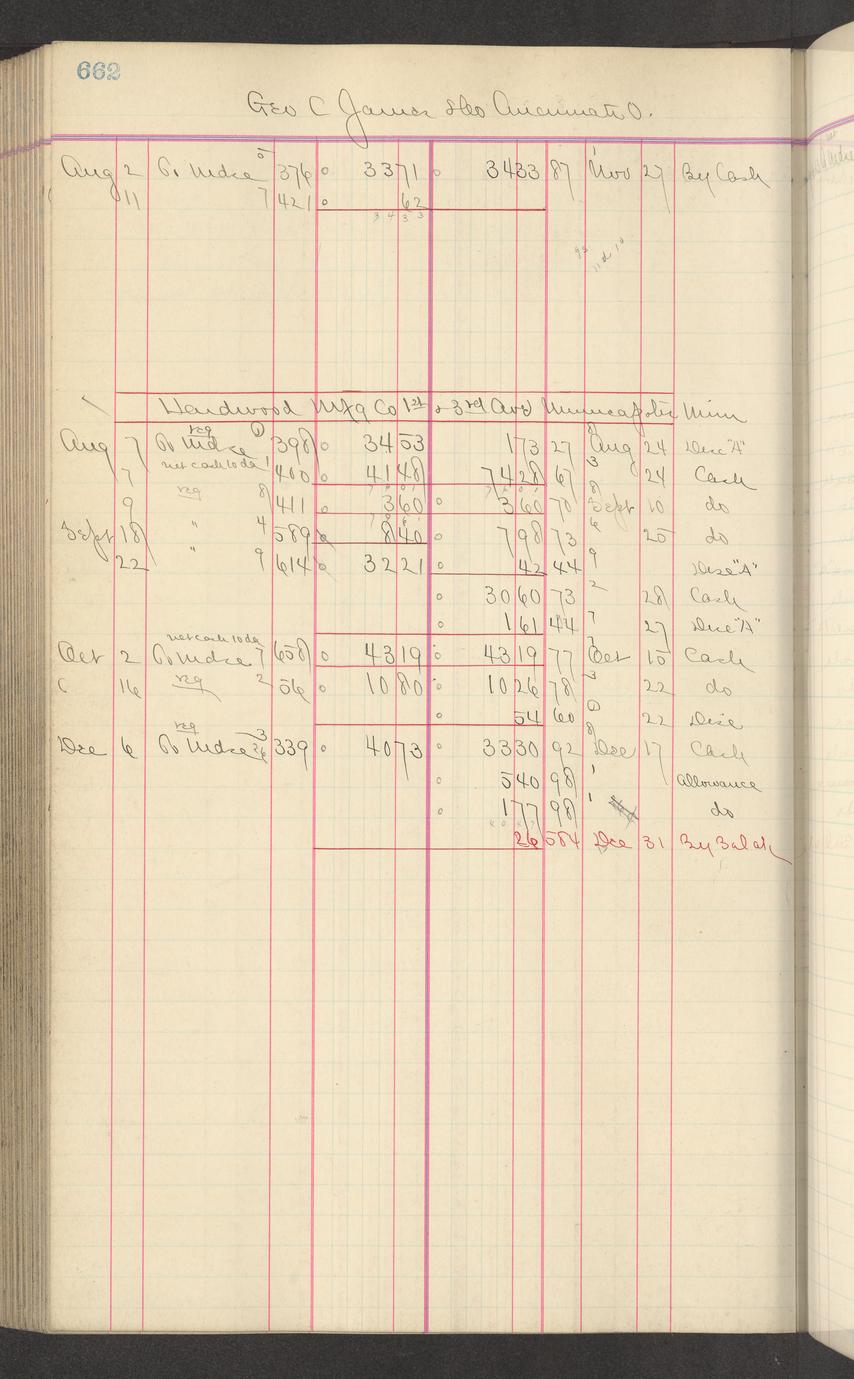 662
Geo C James & Co Cincinnati O.
Aug 2 To Mdse 5 376 33 71 34 33 87 1 Nov 27 By Cash
11 7 421 62
34 33
Hardwood Mfg Co 1st & 3rd Ave Minneapolis Minn
Aug 7 reg To Mdse 1 398 34 53 1 73 27 8 Aug 24 Disc "A"
7 net cash 10 da 1 400 41 48 74 28 67 3 24 Cash
9 reg 8 411 3 60 3 60 70 8 Sept 10 do
Sept 18 " 4 589 8 40 7 98 73 6 25 do
22 " 9 614 32 21 42 44 9 Disc "A"
30 60 73 2 28 Cash
1 61 44 7 27 Disc "A"
Oct 2 net cash 10 da To Mdse 7 658 43 19 43 19 77 Oct 15 Cash
16 reg 2 56 10 80 10 26 78 3 22 do
54 60 1 22 Disc
Dec 6 reg To Mdse 3 26 339 40 73 33 30 92 8 Dec 17 Cash
5 40 98 1 Allowance
1 77 98 1 do
26 584 Dec 31 By Bal